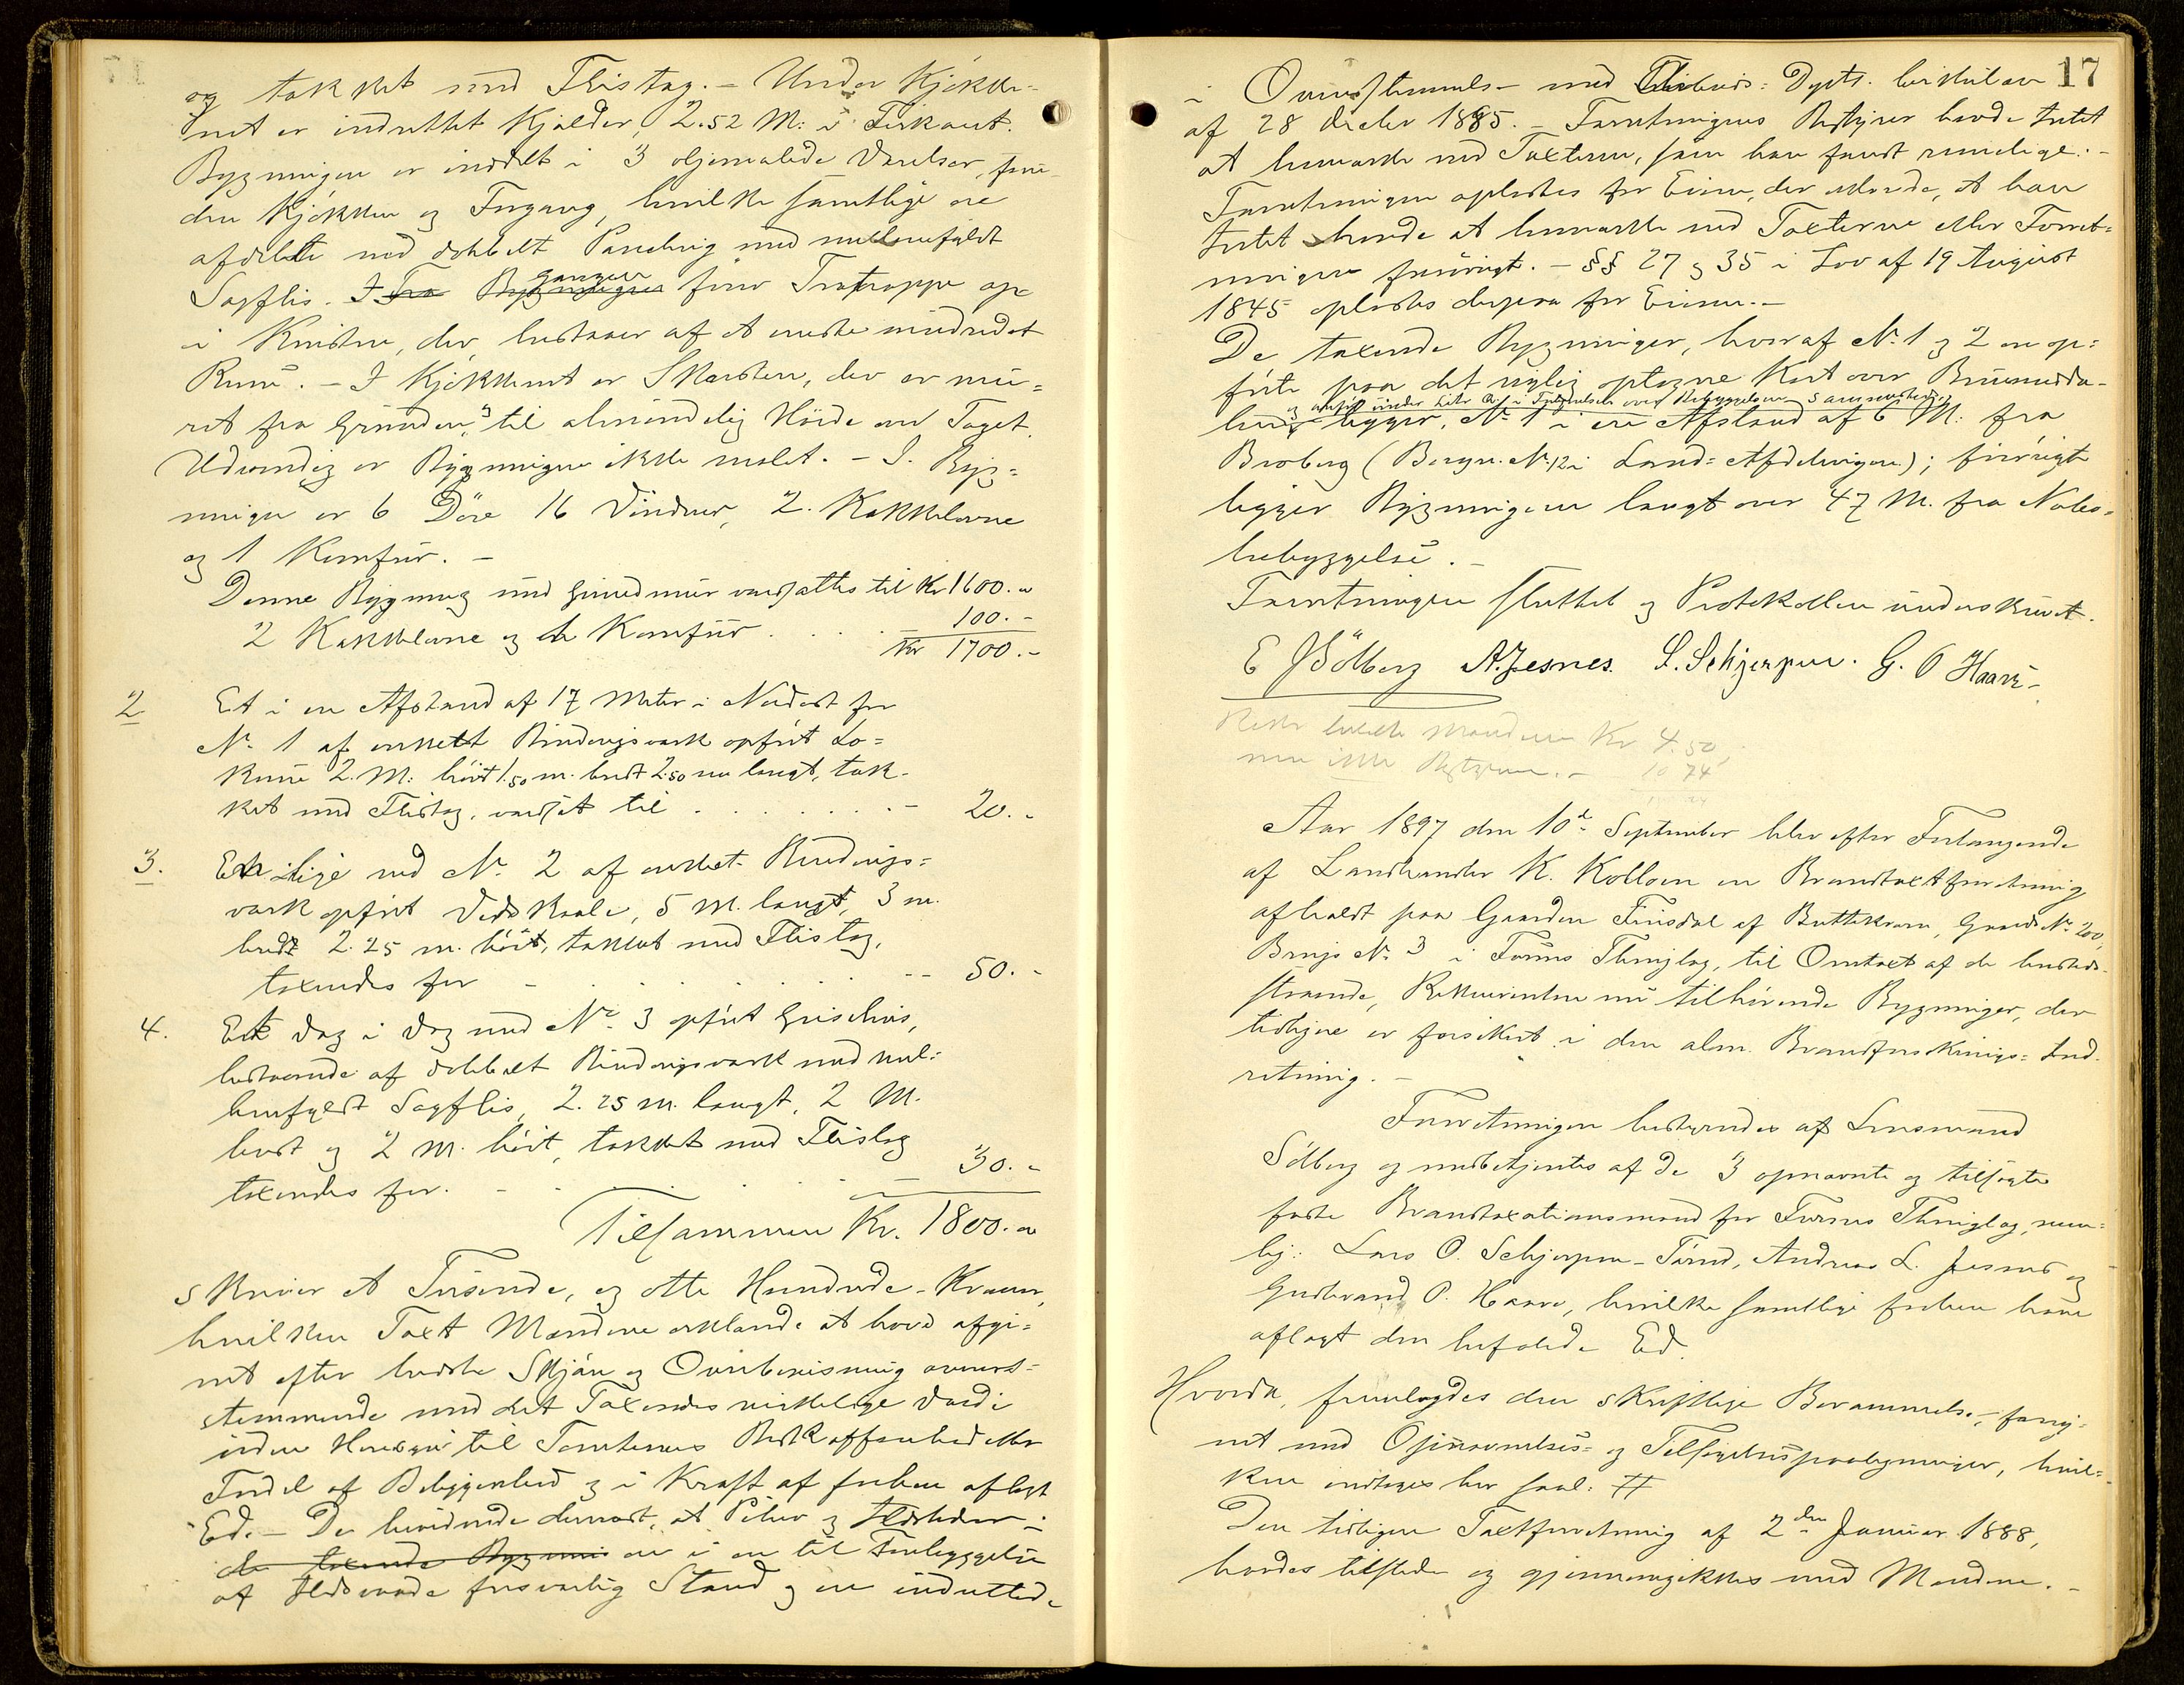 og tækket med Flistag. – Under Kjøkke-
net er indrettet Kjælder, 2.52 M: i Firkant.
Bygningen er inddelt i 3 oljemalede Værelser, foru-
den Kjøkken og Indgang, hvilke samtlige ere
afdelte med dobbelt Paneling med mellemfyldt
Sagflis. I Gangen fører Trætrappe op
i Kvisten, der bestaaer af et eneste uindredet
Rum. – I Kjøkkenet er Skorsten, der er mu=
ret fra Grunden, til almindelig Høide over Taget.
Udvendig er Bygningen ikke malet. – I Byg=
ningen er 6 Døre 16 Vinduer, 2 Kakkelovne
og 1 Komfur. –
Denne Bygning med Grundmur værdsattes til Kr 1600. "
2 Kakkelovne og et Komfur . . . . – 100. -
Kr 1700. -
2 Et i en Afstand af 17 Meter i Nordost for
No 1 af enkelt Bindingsværk opført Lo=
kum 2. M: høit 1.50 m. bredt 2.50 m langt, tæk-
ket med Flistag, værdsat til . . . . . – 20. -
3. En i Lige med No 2 af enkelt Bindings=
værk opført Vedskaale, 5 M. langt, 3 m.
bredt 2.25 m. høit, tækket med Flistag,
taxeredes for – . . . . . -- 50. -
4. Et Væg i Væg med No 3 opført Grisehus,
bestaaende af dobbelt Bindingsværk med mel=
lemfyldt Sagflis, 2.25 m. langt, 2 M.
bredt og 2 M. høit, tækket med Flistag
taxeredes for. – . . . . – 30. -
Tilsammen Kr. 1800. "
skriver et Tusende, og otte Hundrede Kroner,
hvilken Taxt Mændene erklærede at have afgi=
vet efter bedste Skjøn og Overbevisning overens=
stemmende med det Taxeredes virkelige Værdi
uden Hensyn til Tomternes Beskaffenhed eller
Fordel af Beliggenhed og i Kraft af forhen aflagt
Ed. – De bevidnede dernæst, at Piber og Ildsteder i
de taxerede Bygnin er i en til Forebyggelse
af Ildsvaade forsvarlig Stand og ere indrettede
17
i Overensstemmelse med Depts. Cirkulære
af 28 Decbr 1885. – Forretningens Bestyrer havde Intet
at bemærke ved Taxterne, som han fandt rimelige. –
Forretningen oplæstes for Eieren, der erklærede, at han
Intet havde at bemærke ved Taxterne eller Forret=
ningen forøvrigt. – §§ 27 og 35 i Lov af 19 August
1845 oplæstes derpaa for Eieren. –
De taxerede Bygninger, hvoraf No 1 og 2 ere op=
førte paa det nylig optagne Kart over
og anført under Litr i over Bebyggelsen sammesteds,
ligger, No 1 i en Afstand af 6 M: fra
Broberg (Bergn. No 12 i Land=Afdelingen); forøvrigt
ligger Bygningerne langt over 47 M. fra Nabo=
bebyggelse. –
Forretningen sluttet og Protokollen underskrevet.
E Sølberg A. Jesnes. L. Schjerpen. G. O Haare
Mændene Kr 4.50
men ikke Bestyreren. – 10 74
Aar 1897 den 10de September blev efter Forlangende
af Landhandler K. Kolloen en Brandtaxtforretning
afholdt paa Gaarden Finsdal af Buttekvern, Gaards No 200,
Brugs No 3 i Furnes Thinglag, til Omtaxt af de
staaende, Rekvirenten nu tilhørende Bygninger, der
tidligere er forsikret i den alm. Brandforsikrings= Ind-
retning. –
Forretningen bestyredes af Lensmand
Sølberg og medbetjentes af de 3 opnævnte og tilsagte
faste Brandtaxationsmænd for Furnes Thinglag, nem=
lig: Lars O. Schjerpen – Fæmd, Andreas L. Jesnes og
Gudbrand O. Haare, hvilke samtlige forhen have
aflagt den befalede Ed.
Hvorda, fremlagdes den skriftlige Berammelse, forsy=
net med Opnævnelses= og Tilsigelsespaategninger, hvil=
ken indtages her saal. #
Den tidligere Taxtforretning af 2den Januar 1888,
havdes tilstede og gjennemgikkes med Mændene. –